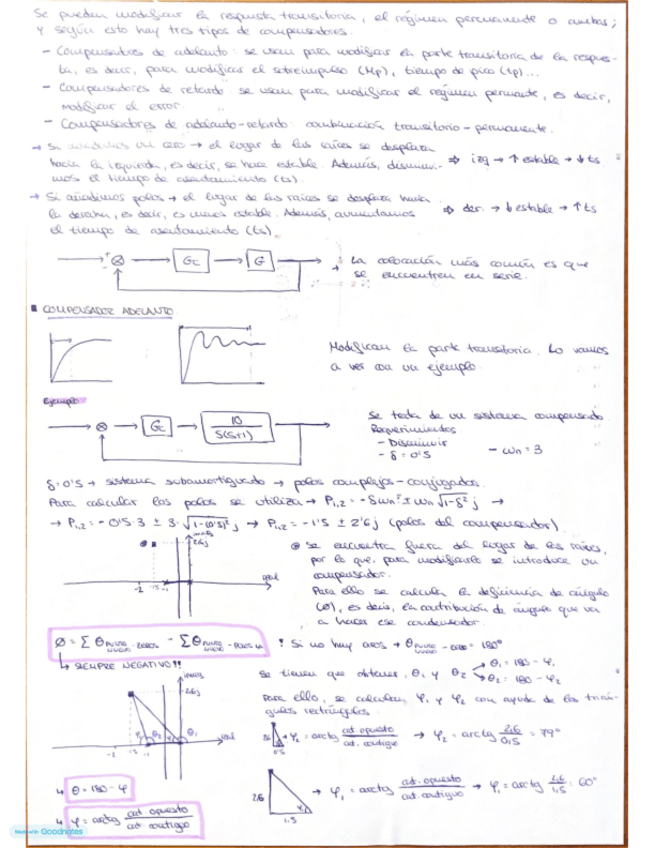 Se pueden modificar la respuesta transitoria, el régimen permanente o ambas;
y según esto hay tres tipos de compensadores.
- Compensadores de adelanto: se usan para modificar la parte transitoria de la respues-
ta, es decir, para modificar el sobreimpulso (Mp), tiempo de pico (tp)...
- Compensadores de retardo: se usan para modificar el régimen permante, es decir,
modificar el error.
- Compensadores de adelanto-retardo: combinación transitorio-permanente.
→ Si añadimos un cero → el lugar de las raíces se desplaza
hacia la izquierda, es decir, se hace estable. Además, disminui-
mos el tiempo de asentamiento (ts).
⇒ izq → ↑ estable → ↓ ts
→ Si añadimos polos → el lugar de las raíces se desplaza hacia
la derecha, es decir, es menos estable. Además, aumentamos
el tiempo de asentamiento (ts).
⇒ der. → ↓ estable → ↑ ts
+
-
Gc
G
→ La colocación más común es que
se encuentren en serie.
COMPENSADOR ADELANTO
Modifican la parte transitoria. Lo vamos
a ver con un ejemplo
Ejemplo
Gc
10
S(S+1)
Se trata de un sistema compensado
Requerimientos
- Disminuir
- δ = 0'5
- ωn = 3
δ = 0'5 → sistema subamortiguado → polos complejos-conjugados.
Para calcular los polos se utiliza → P1,2 = -δωn ± ωn √1-δ² j →
→ P1,2 = - 0'5·3 ± 3·√1-(0'5)² j → P1,2 = -1'5 ± 2'6 j (polos del compensador).
imag
2.6j
real
-2
-1.5
-1
Se encuentra fuera del lugar de las raíces,
por lo que, para modificarlo se introduce un
compensador.
Para ello se calcula la deficiencia de ángulo
(Ø), es decir, la contribución de ángulo que va
a hacer ese condensador.
Ø = Σ θ PUNTO NUEVO - ZEROS - Σ θ PUNTO NUEVO - POLOS LA
! Si no hay ceros → θ PUNTO NUEVO - CERO = 180°
↳ SIEMPRE NEGATIVO!!
Se tienen que obtener θ1 y θ2
θ1 = 180 - φ1
θ2 = 180 - φ2
Para ello, se calculan φ1 y φ2 con ayuda de los trián-
gulos rectángulos.
imag
2.6j
real
-2
-1.5
-1
φ1
θ2
θ1
2.6
0.5
φ2 = arctg cat. opuesto / cat. contiguo → φ2 = arctg 2.6 / 0.5 = 79°
↳ θ = 180 - φ
2.6
φ1
1.5
→ φ1 = arctg cat. opuesto / cat. contiguo → φ1 = arctg 2.6 / 1.5 = 60°
↳ φ = arctg cat opuesto / cat. contiguo
Made with Goodnotes